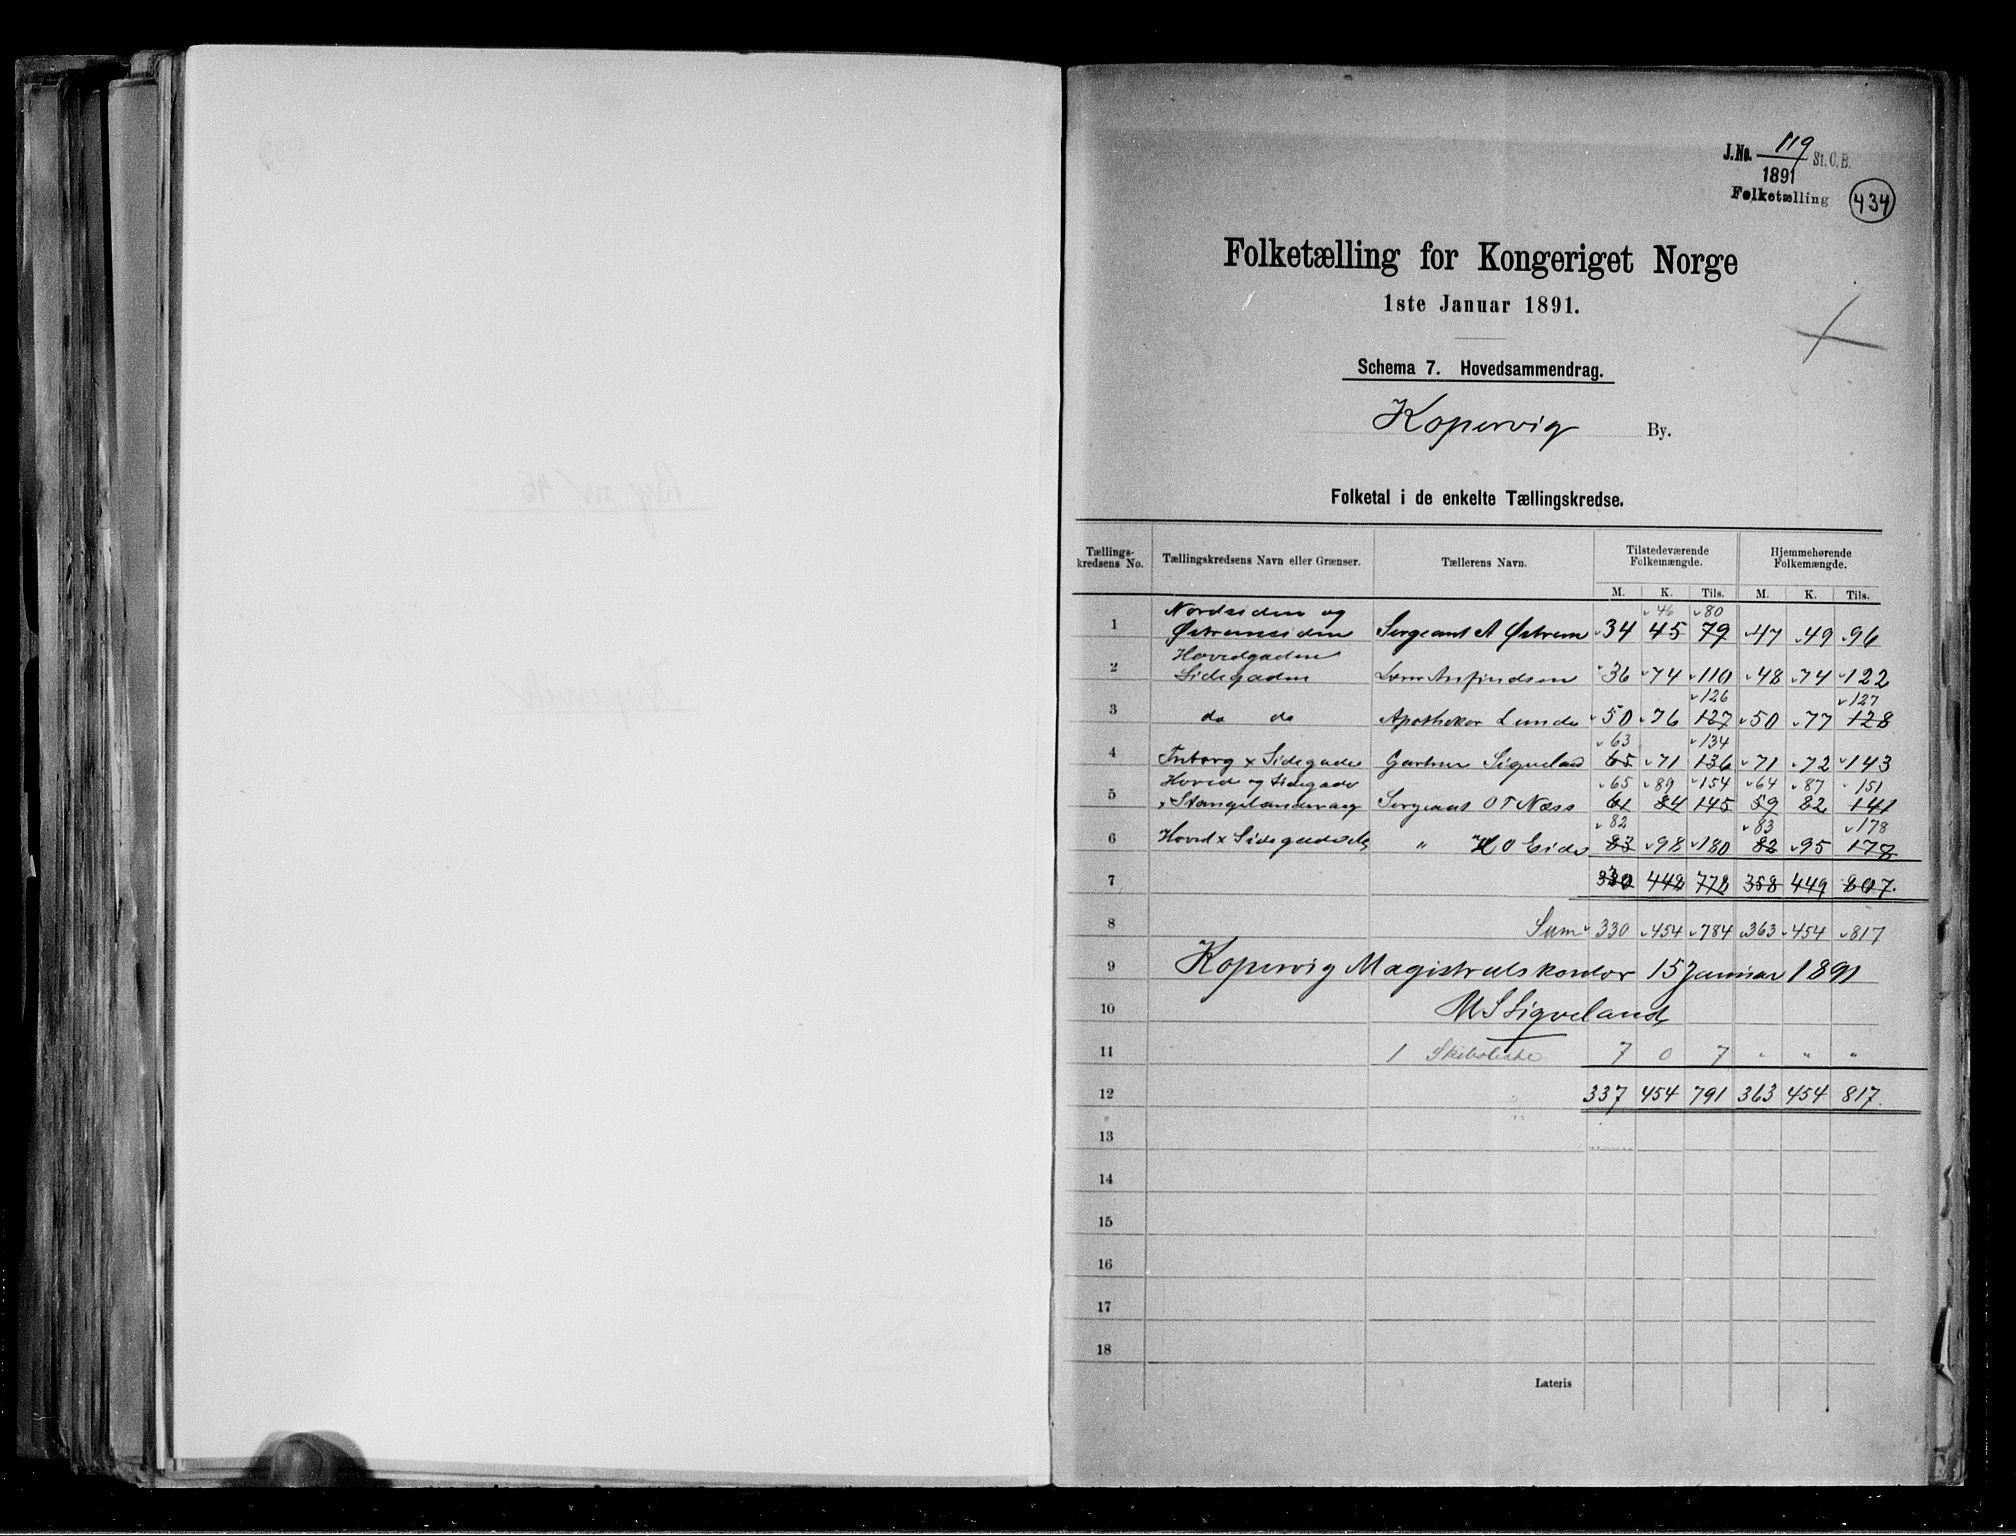 J.No. 119 St. C. B.
1891
Folketælling 434
Folketælling for Kongeriget Norge
1ste Januar 1891.
Schema 7. Hovedsammendrag.
Kopervig By.
Folketal i de enkelte Tællingskredse.
Tællings- kredsens No. Tællingskredsens Navn eller Grænser. Tællerens Navn. Tilstedeværende Folkemængde. Hjemmehørende Folkemængde.
M. K. Tils. M. K. Tils.
Nordsiden og 46 80
1 Østremsiden Sergeant A Østrem 34 45 79 47 49 96
Hovedgaden
2 Sidegaden Anfindsen 36 74 110 48 74 122
126 127
3 do do Apotheker Lunde 50 76 127 50 77 128
63 134
4 Treborg x Sidegade Gartner Siqveland 65 71 136 71 72 143
Hoved og Sidegade 65 89 154 64 87 151
5 x Stangelandsvaag Sergeant O T Næss 61 84 145 59 82 141
82 83 178
6 Hoved x Sidegade " H O Eide 83 98 180 82 95 177
7 330 448 778 358 449 807.
8 Sum 330 454 784 363 454 817
9 Kopervig Magistratskontor 15 Januar 1891
10 M S Siqveland
11 1 Skibsliste 7 0 7 " " "
12 337 454 791 363 454 817.
13
14
15
16
17
18
Lateris